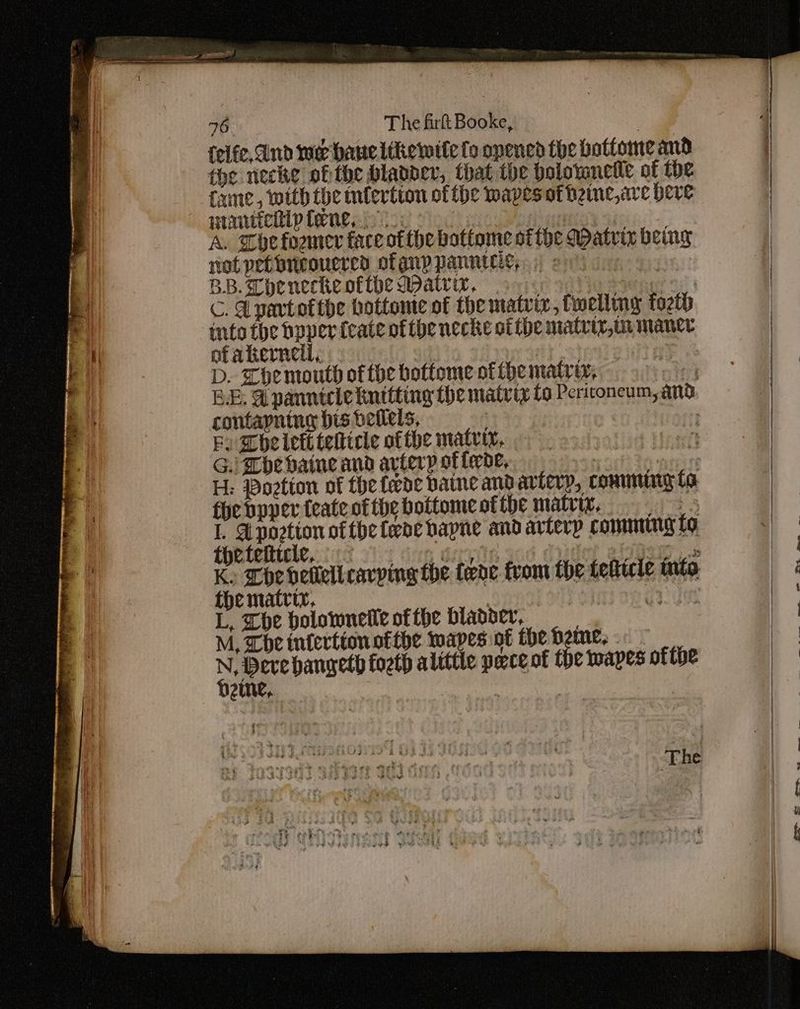 76 The first Booke,
selfe. And wee haue likewise so opened the bottome and
the necke of the bladder, that the holownesse of the
same, with the insertion of the wayes of vrine, are here
manifestly seene.
A. The former face of the bottome of the Matrix being
not yet vncouered of any pannicle.
B.B. The necke of the Matrix.
C. A part of the bottome of the matrix, swelling forth
into the vpper seate of the necke of the matrix, in maner
of a kernell.
D. The mouth of the bottome of the matrix.
E.E. A pannicle knitting the matrix to Peritoneum, and
contayning his vessels.
F. The left testicle of the matrix.
G. The vaine and artery of seede.
H. Portion of the seede vaine and artery, comming to
the vpper seate of the bottome of the matrix.
I. A portion of the seede vayne and artery comming to
the testicle.
K. The vessell carying the seede from the testicle into
the matrix.
L. The holownesse of the bladder.
M. The insertion of the wayes of the vrine.
N. Here hangeth forth a little peece of the wayes of the
vrine.
The